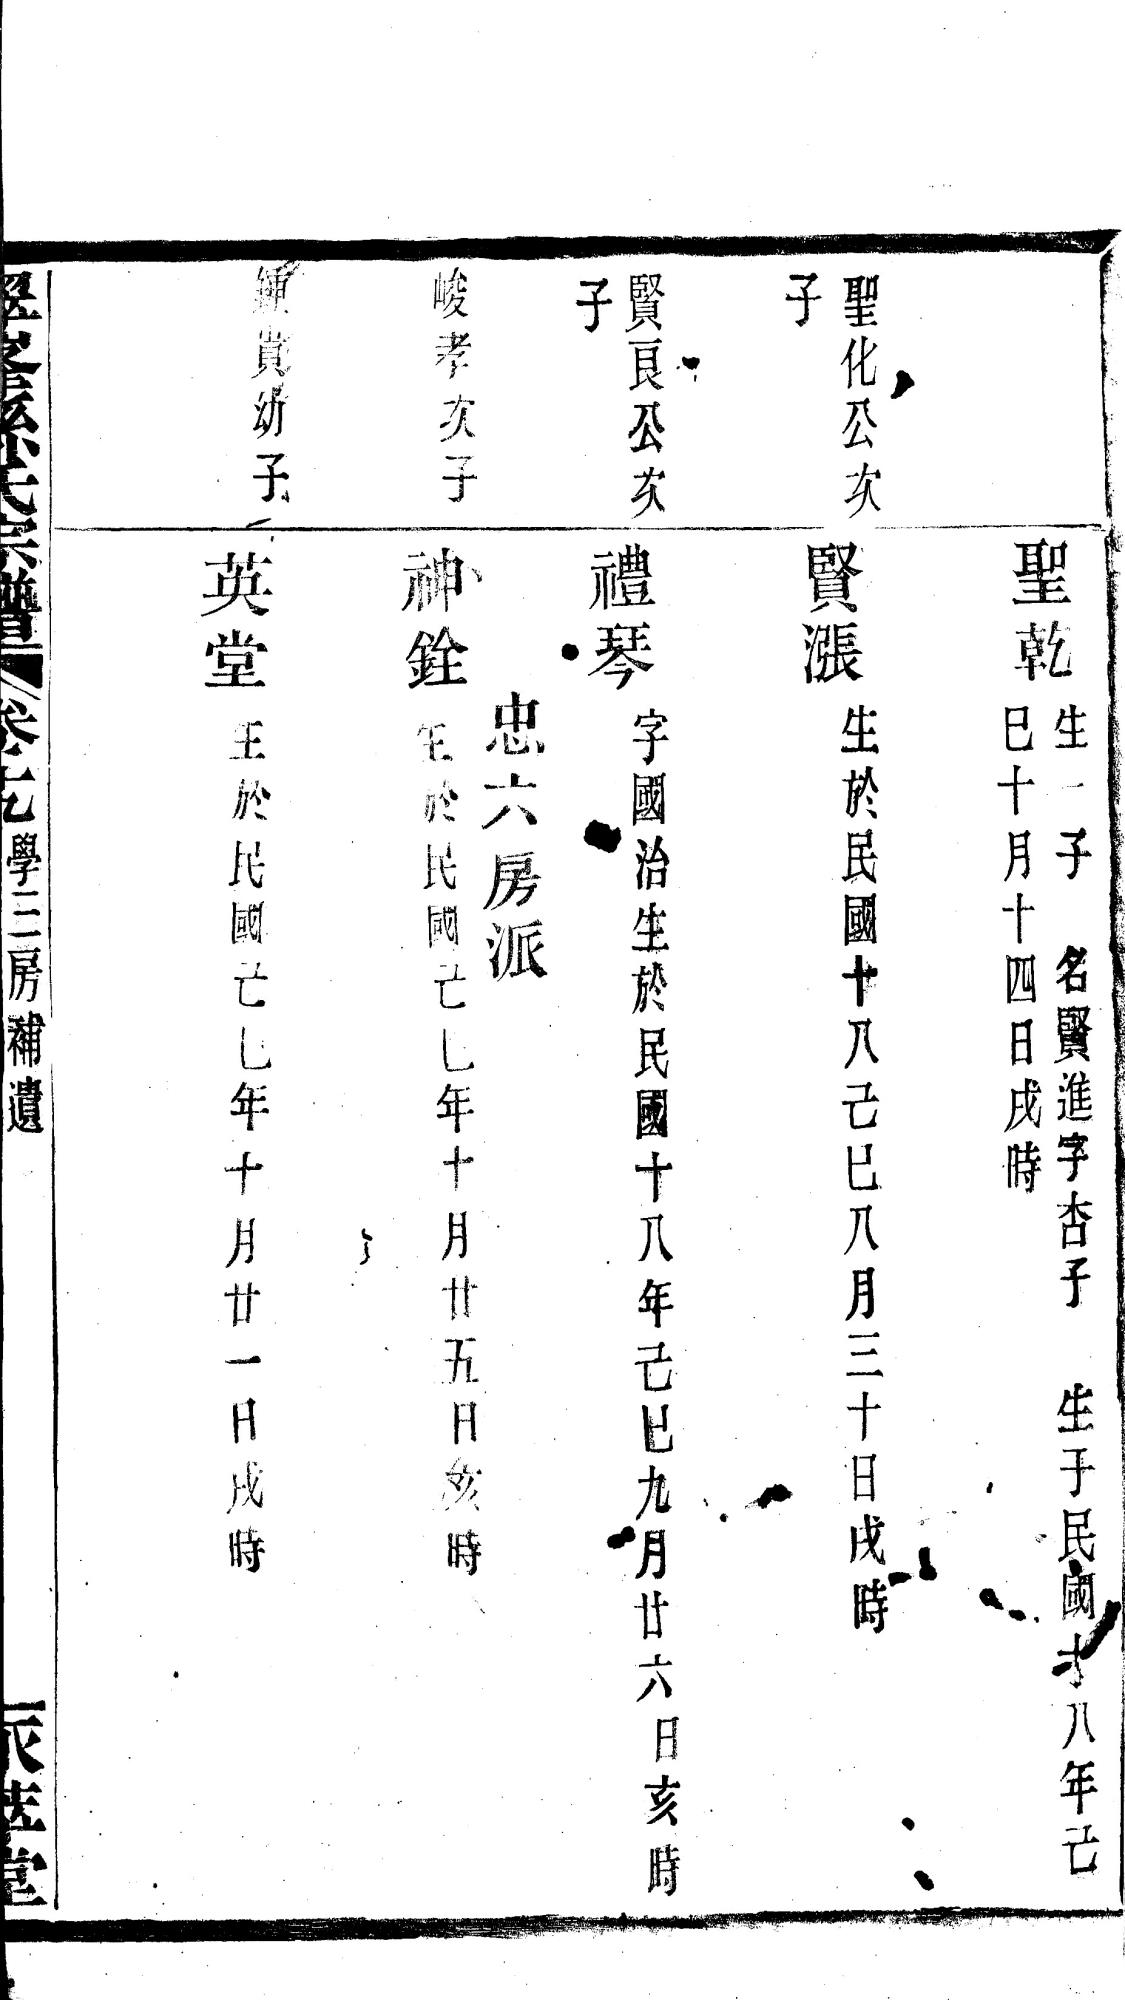 聖乾
生一子　名賢進字杏子　生于民國十八年己
巳十月十四日戌時
聖化公次
子
賢漲
生於民國十八己巳八月三十日戌時
賢良公次
子
禮琴
字國治生於民國十八年己巳九月廿六日亥時
忠六房派
峻孝次子
神銓
生於民國己巳年十月廿五日亥時
幼子
英堂
生於民國己巳年十月廿一日戌時
孫氏宗譜
學三房補遺
堂